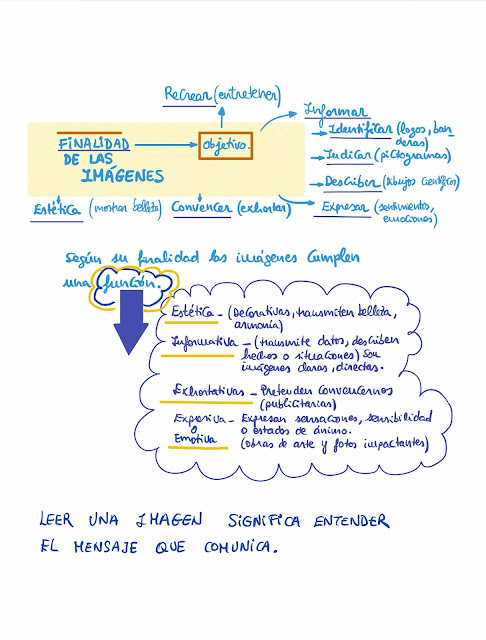 Recrear (entretener)
Informar
Identificar (logos, ban
deras)
FINALIDAD
DE LAS
IMÁGENES
Objetivo.
Indicar (pictogramas)
Describir (dibujos científicos)
Estética (mostrar belleza)
Convencer (exhortar)
Expresar (sentimientos,
emociones)
Según su finalidad las imágenes cumplen
una función.
Estética - (Decorativas, transmiten belleza,
armonía)
Informativa - (transmite datos, describen
hechos o situaciones) Son
imágenes claras, directas.
Exhortativas - Pretenden convencernos
(publicitarias)
Expresiva - Expresan sensaciones, sensibilidad
o o estados de ánimo.
Emotiva (obras de arte y fotos impactantes)
LEER UNA IMAGEN SIGNIFICA ENTENDER
EL MENSAJE QUE COMUNICA.